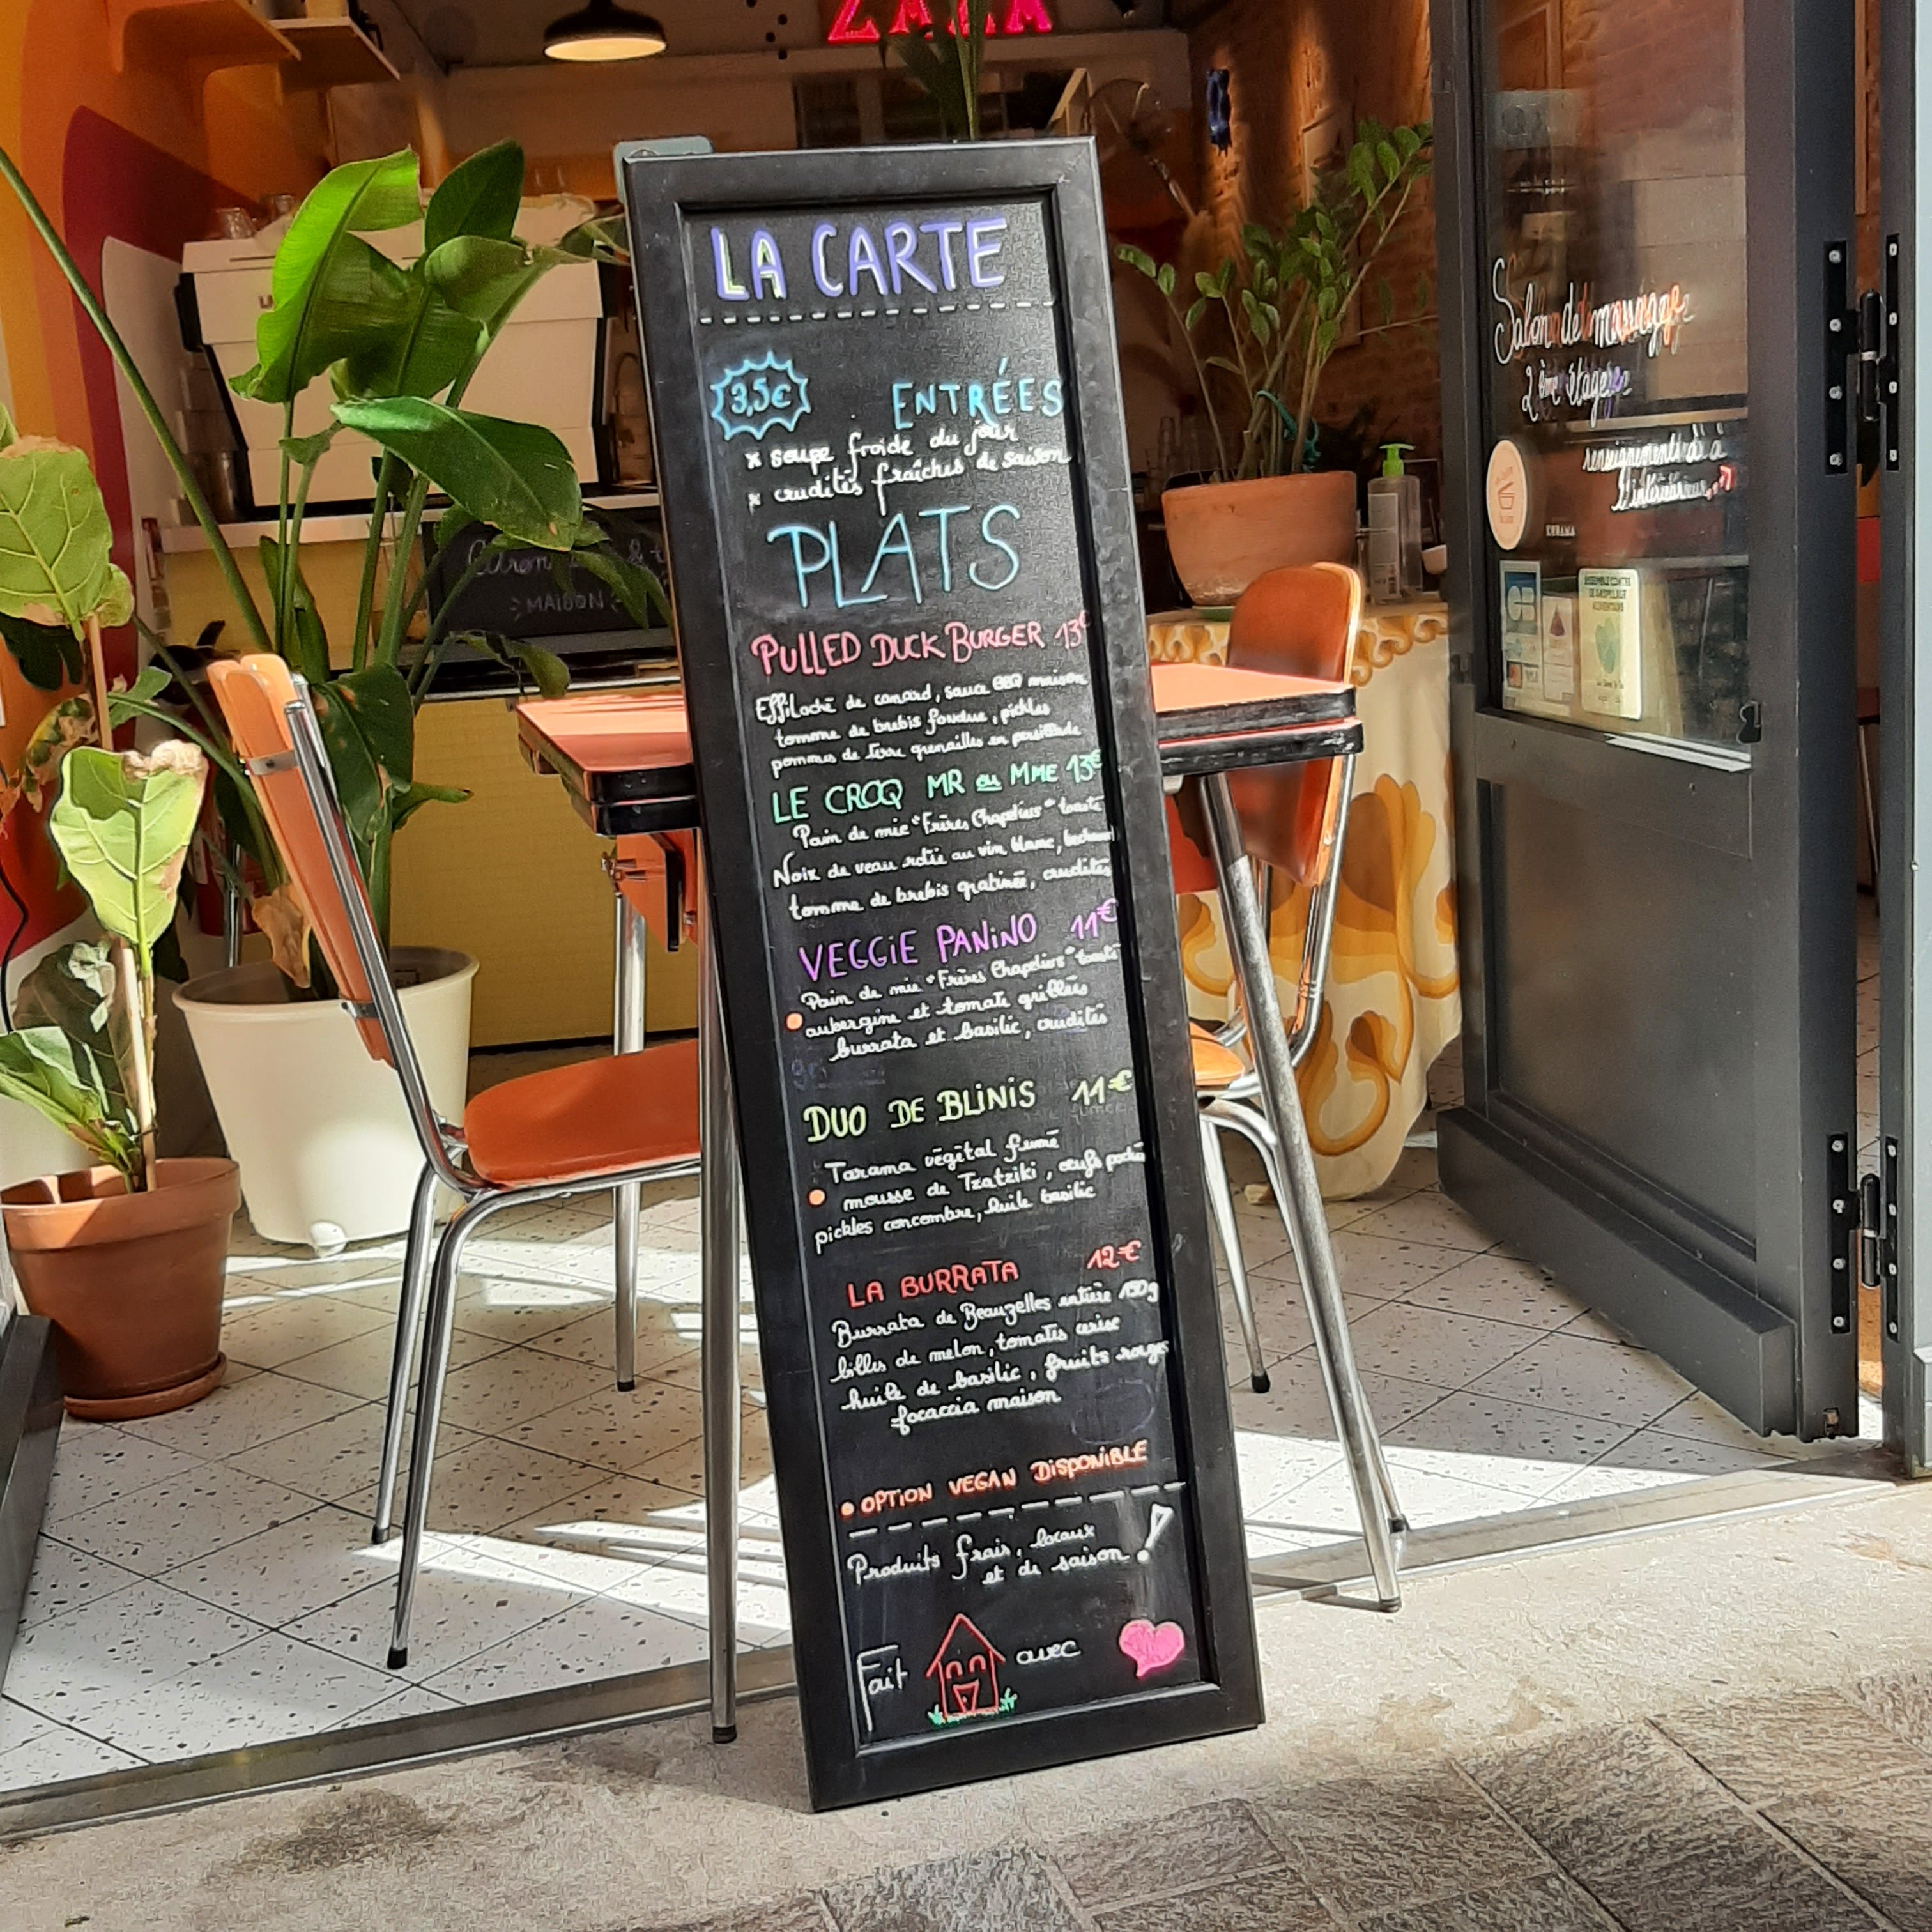 LA CARTE
3,5€
ENTRÉES
x soupe froide du jour
x crudités fraîches de saison
PLATS
PULLED DUCK BURGER 13€
Effiloché de canard, sauce BBQ maison
tomme de brebis fondue, pickles
pommes de terre grenailles en persillade
LE CROQ MR ou MME 13€
Pain de mie "Frères Chapeliers" toasté
Noix de veau rôtie au vin blanc,
tomme de brebis gratinée, crudités
VEGGIE PANINO 11€
Pain de mie "Frères Chapeliers" toasté
aubergine et tomate grillées
burrata et basilic, crudités
DUO DE BLINIS 11€
Tarama végétal fumé
mousse de Tzatziki, œufs poché
pickles concombre, huile basilic
LA BURRATA 12€
Burrata de Beauzelles entière 150g
billes de melon, tomates cerise
huile de basilic, fruits rouges
focaccia maison
OPTION VEGAN DISPONIBLE
Produits frais, locaux
et de saison !
Fait avec
MAISON
Salon de massage
2ème étage
renseignements à
l'intérieur